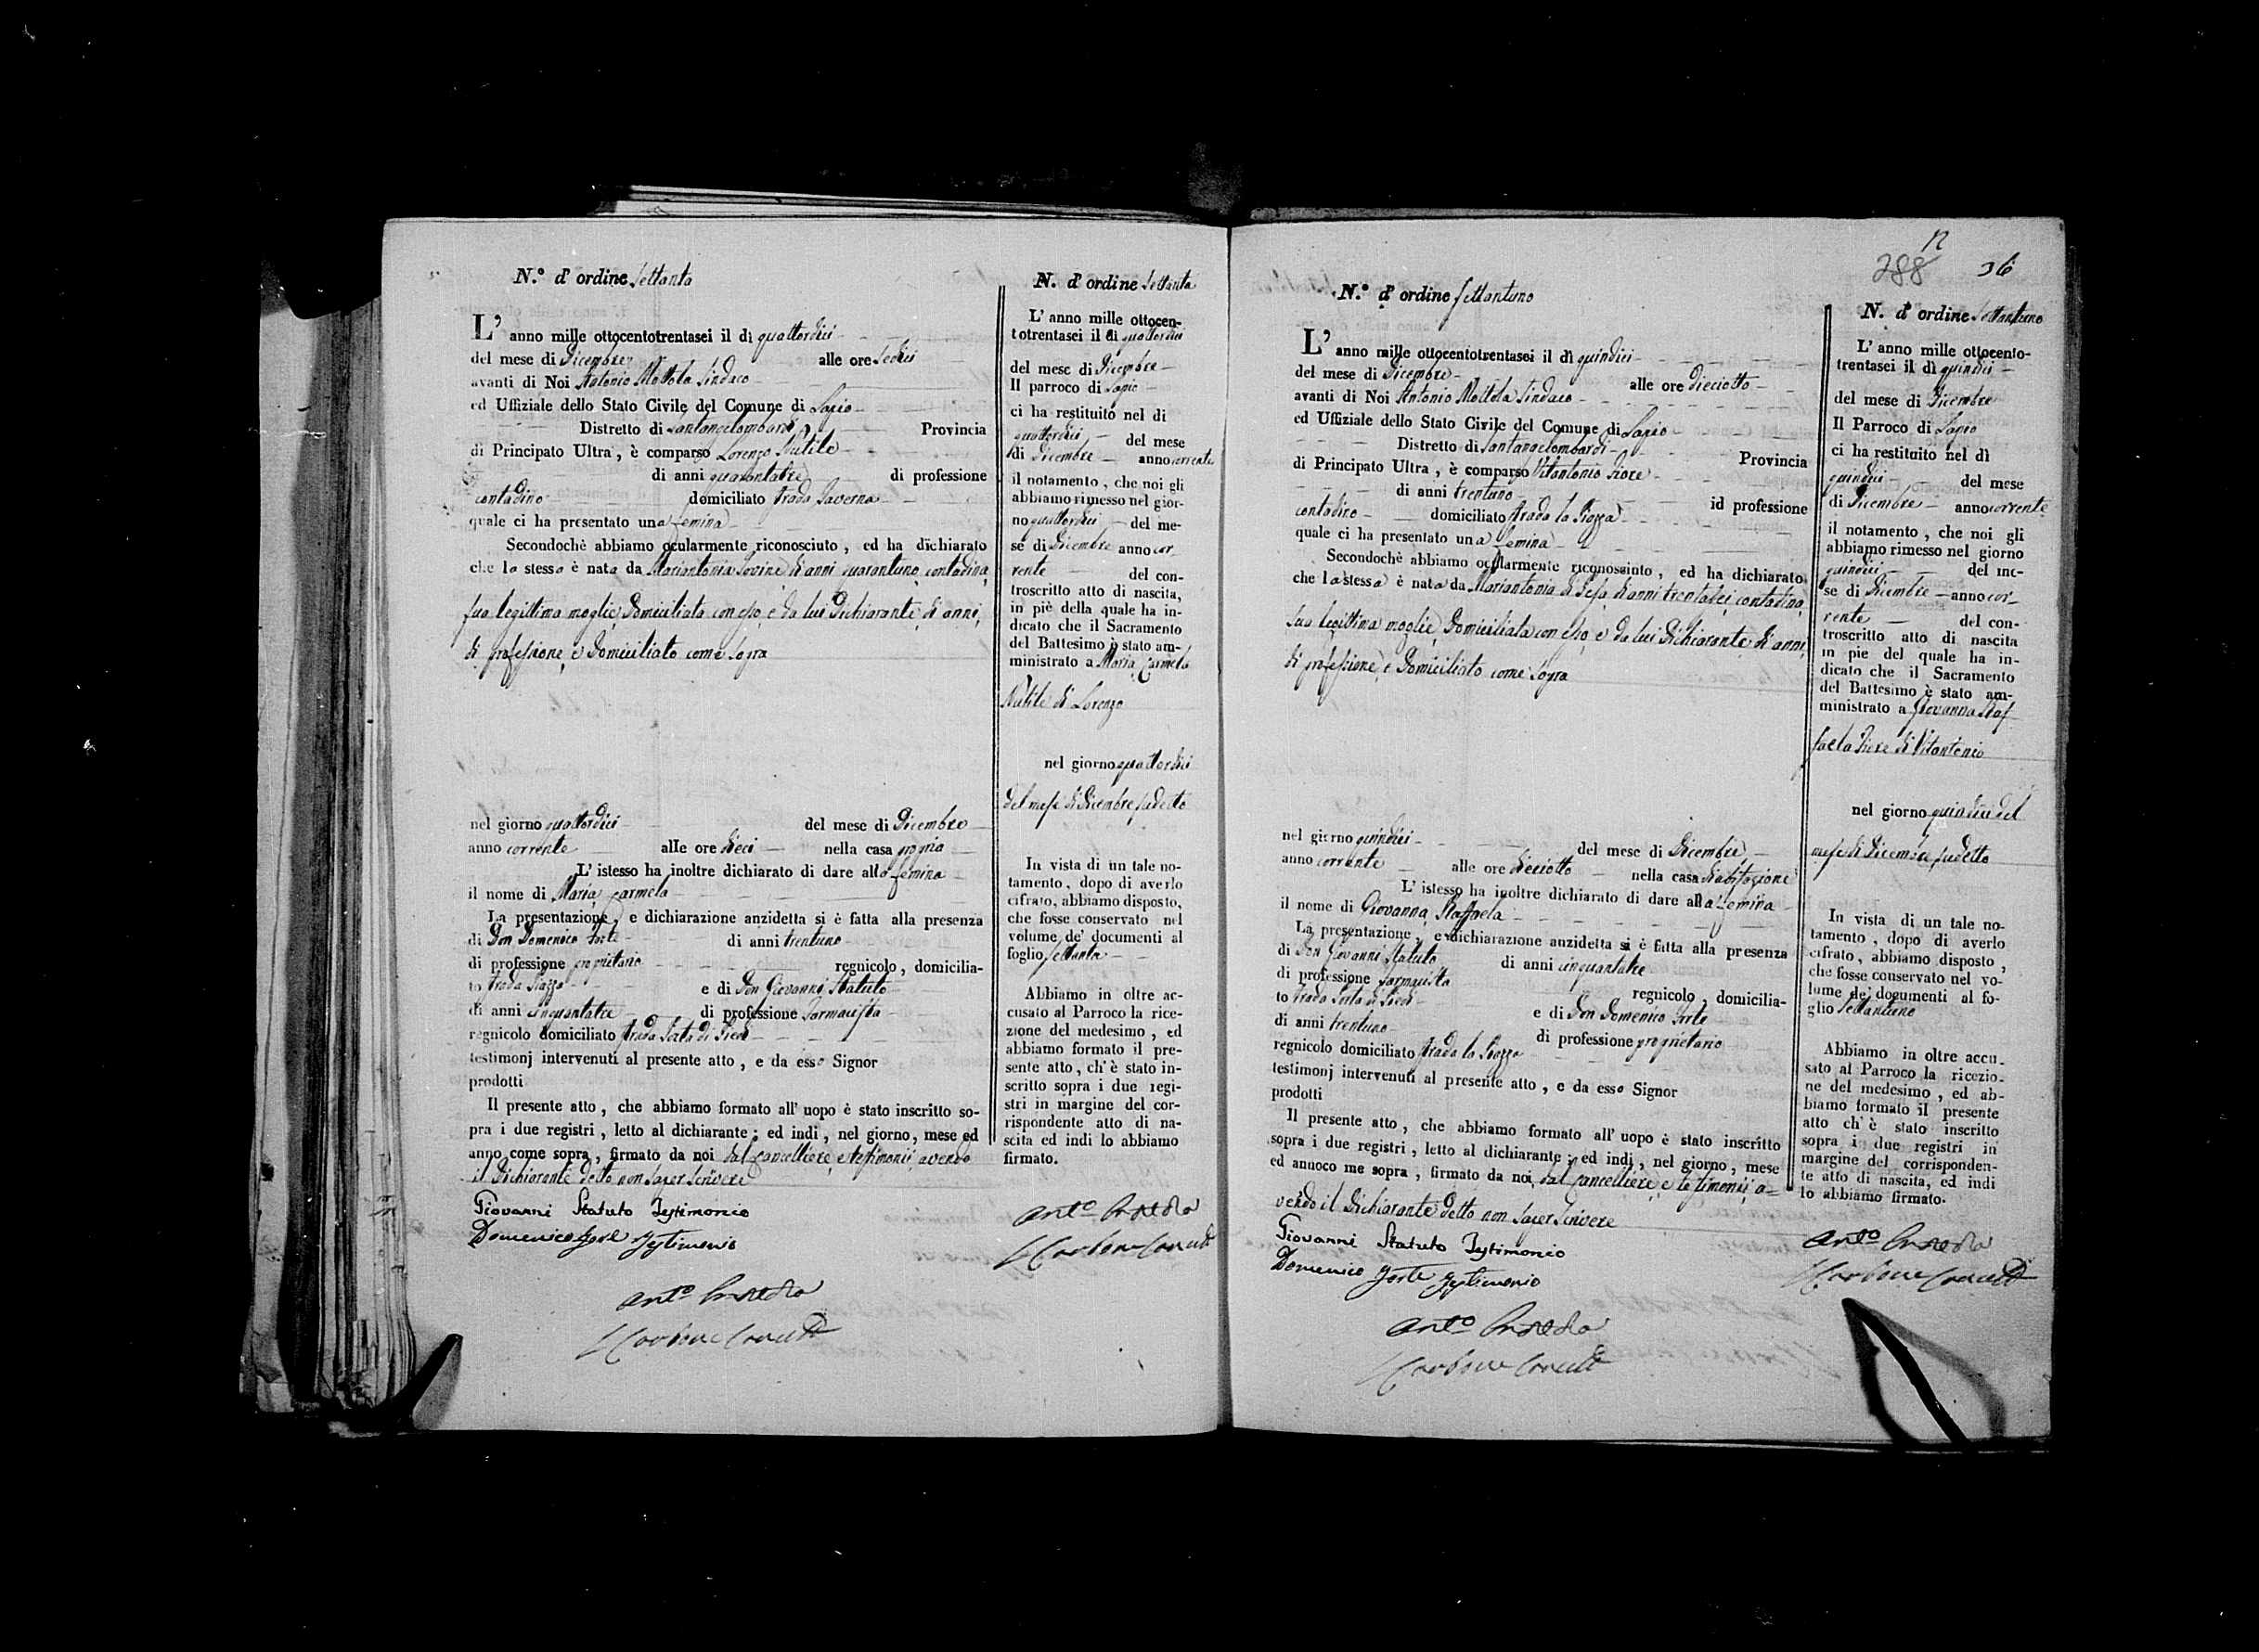 N.º d' ordine Settanta
L' anno mille ottocentotrentasei il dì quattordici
del mese di Dicembre alle ore sedici
avanti di Noi Antonio Mottola Sindaco
ed Uffiziale dello Stato Civile del Comune di Lapio
Distretto di Santangelombardi Provincia
di Principato Ultra, è comparso Lorenzo Nutile
di anni quarantatre di professione
contadino domiciliato strada Taverna
quale ci ha presentato una femina
Secondochè abbiamo ocularmente riconosciuto, ed ha dichiarato
che la stessa è nata da Mariantonia Iovine di anni quarantuno contadina
sua legittima moglie, domiciliata con esso, e da lui dichiarante di anni,
di professione, e domiciliato come sopra
nel giorno quattordici del mese di Dicembre
anno corrente alle ore dieci nella casa propria
L' istesso ha inoltre dichiarato di dare alla femina
il nome di Maria Carmela
La presentazione, e dichiarazione anzidetta si è fatta alla presenza
di Don Domenico Forte di anni trentuno
di professione proprietario regnicolo, domicilia-
to strada Piazza e di Don Giovanni Statuto
di anni cinquantatre di professione Farmacista
regnicolo domiciliato strada Porta di Piedi
testimonj intervenuti al presente atto, e da esso Signor
prodotti
Il presente atto, che abbiamo formato all' uopo è stato inscritto so-
pra i due registri, letto al dichiarante; ed indi, nel giorno, mese ed
anno come sopra, firmato da noi dal Cancelliere, e testimonii avendo
il dichiarante detto non saper scrivere
Giovanni Statuto Testimonio
Domenico Forte Testimonio
Ant.o Mottola
Carbone
N. d' ordine Settanta
L' anno mille ottocen-
totrentasei il di quattordici
del mese di Dicembre
Il parroco di Lapio
ci ha restituito nel di
quattordici del mese
di Dicembre anno corrente
il notamento, che noi gli
abbiamo rimesso nel gior-
no quattordici del me-
se di Dicembre anno cor-
rente del con-
troscritto atto di nascita,
in piè della quale ha in-
dicato che il Sacramento
del Battesimo è stato am-
ministrato a Maria Carmela
Nutile di Lorenzo
nel giorno quattordici
del mese di Dicembre sudetto
In vista di un tale no-
tamento, dopo di averlo
cifrato, abbiamo disposto,
che fosse conservato nel
volume de' documenti al
foglio settanta
Abbiamo in oltre ac-
cusato al Parroco la rice-
zione del medesimo, ed
abbiamo formato il pre-
sente atto, ch' è stato in-
scritto sopra i due regi-
stri in margine del cor-
rispondente atto di na-
scita ed indi lo abbiamo
firmato.
Ant.o Mottola
Carbone
288 36
N.º d' ordine Settantuno
L' anno mille ottocentotrentasei il dì quindici
del mese di Dicembre alle ore dieciotto
avanti di Noi Antonio Mottola Sindaco
ed Uffiziale dello Stato Civile del Comune di Lapio
Distretto di Santangelombardi Provincia
di Principato Ultra, è comparso Vitantonio Fiore
di anni trentuno id professione
contadino domiciliato strada la Piazza
quale ci ha presentato una femina
Secondochè abbiamo ocularmente riconossinto, ed ha dichiarato
che la stessa è nata da Mariantonia di Gesa di anni trentasei contadina,
sua legittima moglie, domiciliata con esso, e da lui dichiarante di anni,
di professione, e domiciliato come sopra
nel giorno quindici del mese di Dicembre
anno corrente alle ore dieciotto nella casa di abitazione
L' istesso ha inoltre dichiarato di dare alla femina
il nome di Giovanna Raffaela
La presentazione, e dichiarazione anzidetta si è fatta alla presenza
di Don Giovanni Statuto di anni cinquantatre
di professione Farmacista regnicolo, domicilia-
to strada Porta di Piedi e di Don Domenico Forte
di anni trentuno di professione proprietario
regnicolo domiciliato strada la Piazza
testimonj intervenuti al presente atto, e da esso Signor
prodotti
Il presente atto, che abbiamo formato all' uopo è stato inscritto
sopra i due registri, letto al dichiarante; ed indi, nel giorno, mese
ed annoco me sopra, firmato da noi dal Cancelliere, e testimonii, a-
vendo il dichiarante detto non saper scrivere
Giovanni Statuto Testimonio
Domenico Forte Testimonio
Ant.o Mottola
Carbone
N. d' ordine Settantuno
L' anno mille ottocento-
trentasei il dì quindici
del mese di Dicembre
Il Parroco di Lapio
ci ha restituito nel dì
quindici del mese
di Dicembre anno corrente
il notamento, che noi gli
abbiamo rimesso nel giorno
quindici del me-
se di Dicembre anno cor-
rente del con-
troscritto atto di nascita
in pie del quale ha in-
dicato che il Sacramento
del Battesimo è stato am-
ministrato a Giovanna Raf-
faela Fiore di Vitantonio
nel giorno quindici del
mese di Dicembre sudetto
In vista di un tale no-
tamento, dopo di averlo
cifrato, abbiamo disposto,
che fosse conservato nel vo-
lume de' documenti al fo-
glio settantuno
Abbiamo in oltre accu-
sato al Parroco la ricezio-
ne del medesimo, ed ab-
biamo formato il presente
atto ch' è stato inscritto
sopra i due registri in
margine del corrisponden-
te atto di nascita, ed indi
lo abbiamo firmato.
Ant.o Mottola
Carbone